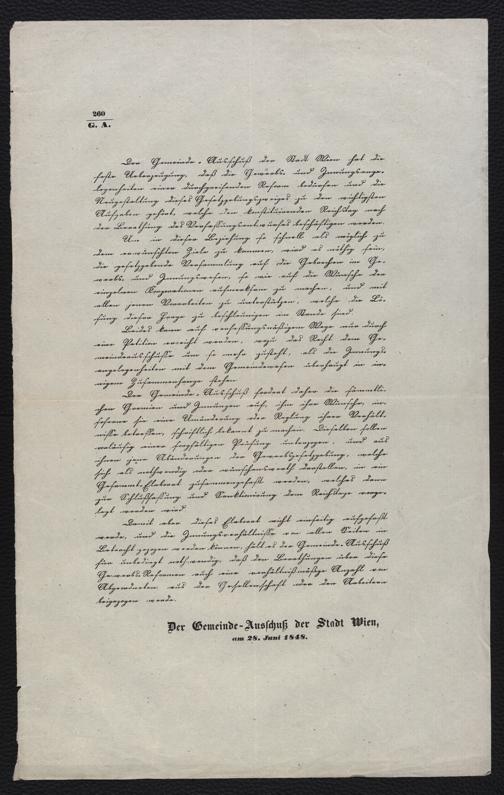 260
G. A.
Der Gemeinde-Ausschuß der Stadt Wien hat die
feste Ueberzeugung, daß die Gewerbs- und Innungsange-
legenheiten einer durchgreifenden Reform bedürfen und die
Neugestaltung dieses Gesetzgebungszweiges zu den wichtigsten
Aufgaben gehört, welche den konstituirenden Reichstag nach
der Berathung des Verfassungsentwurfes beschäftigen werden.
Um in dieser Beziehung so schnell als möglich zu
dem erwünschten Ziele zu kommen, wird es nöthig sein,
die gesetzgebende Versammlung auf die Gebrechen im Ge-
werbs- und Innungswesen, so wie auf die Wünsche der
einzelnen Korporationen aufmerksam zu machen, und mit
allen jenen Vorarbeiten zu unterstützen, welche die Lö-
sung dieser Frage zu beschleunigen im Stande sind.
Beides kann auf verfassungsmäßigem Wege nur durch
eine Petition erreicht werden, wozu das Recht dem Ge-
meindeausschusse um so mehr zusteht, als die Innungs-
angelegenheiten mit dem Gemeindewesen überhaupt in in-
nigem Zusammenhange stehen.
Der Gemeinde-Ausschuß fordert daher die sämmtli-
chen Gremien und Innungen auf, ihm ihre Wünsche, in-
soferne sie eine Aenderung der Reglung ihrer Verhält-
nisse betreffen, schriftlich bekannt zu machen. Dieselben sollen
vorläufig einer sorgfältigen Prüfung unterzogen, und aus
ihnen jene Abänderungen der Gewerbsgesetzgebung, welche
sich als nothwendig oder wünschenswerth darstellen, in ein
Gesammt-Elaborat zusammengefaßt werden, welches dann
zur Schlußfassung und Sanktionirung dem Reichstage vorge-
legt werden wird.
Damit aber dieses Elaborat nicht einseitig aufgefaßt
werde, und die Innungsverhältnisse von allen Seiten in
Betracht gezogen werden können, hält es der Gemeinde-Ausschuß
für unbedingt nothwendig, daß den Berathungen über diese
Gewerbs-Reformen auch eine verhältnißmäßige Anzahl von
Abgeordneten aus der Gesellenschaft oder den Arbeitern
beigezogen werde.
Der Gemeinde-Ausschuß der Stadt Wien,
am 28. Juni 1848.